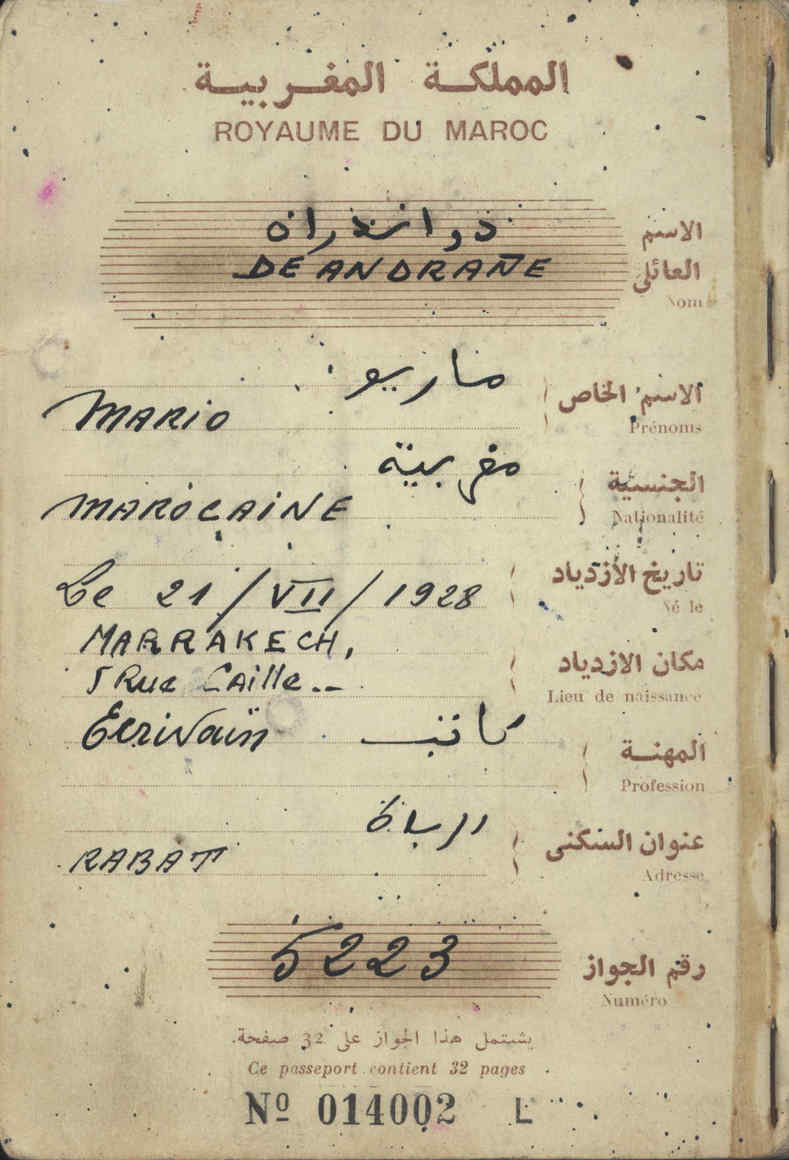 المملكة المغربية
ROYAUME DU MAROC
الاسم
العائلي
Nom
دو اندرانه
DE ANDRAÑE
الاسم الخاص
Prénoms
ماريو
MARIO
الجنسية
Nationalité
مغربية
MAROCAINE
تاريخ الأزدياد
Né le
Le 21/VII/1928
مكان الازدياد
Lieu de naissance
MARRAKECH,
5 Rue Caille.--
المهنة
Profession
Ecrivaïn كاتب
عنوان السكنى
Adresse
الرباط
RABAT
رقم الجواز
Numéro
5223
يشتمل هذا الجواز على 32 صفحة.
Ce passeport contient 32 pages
Nº 014002 L